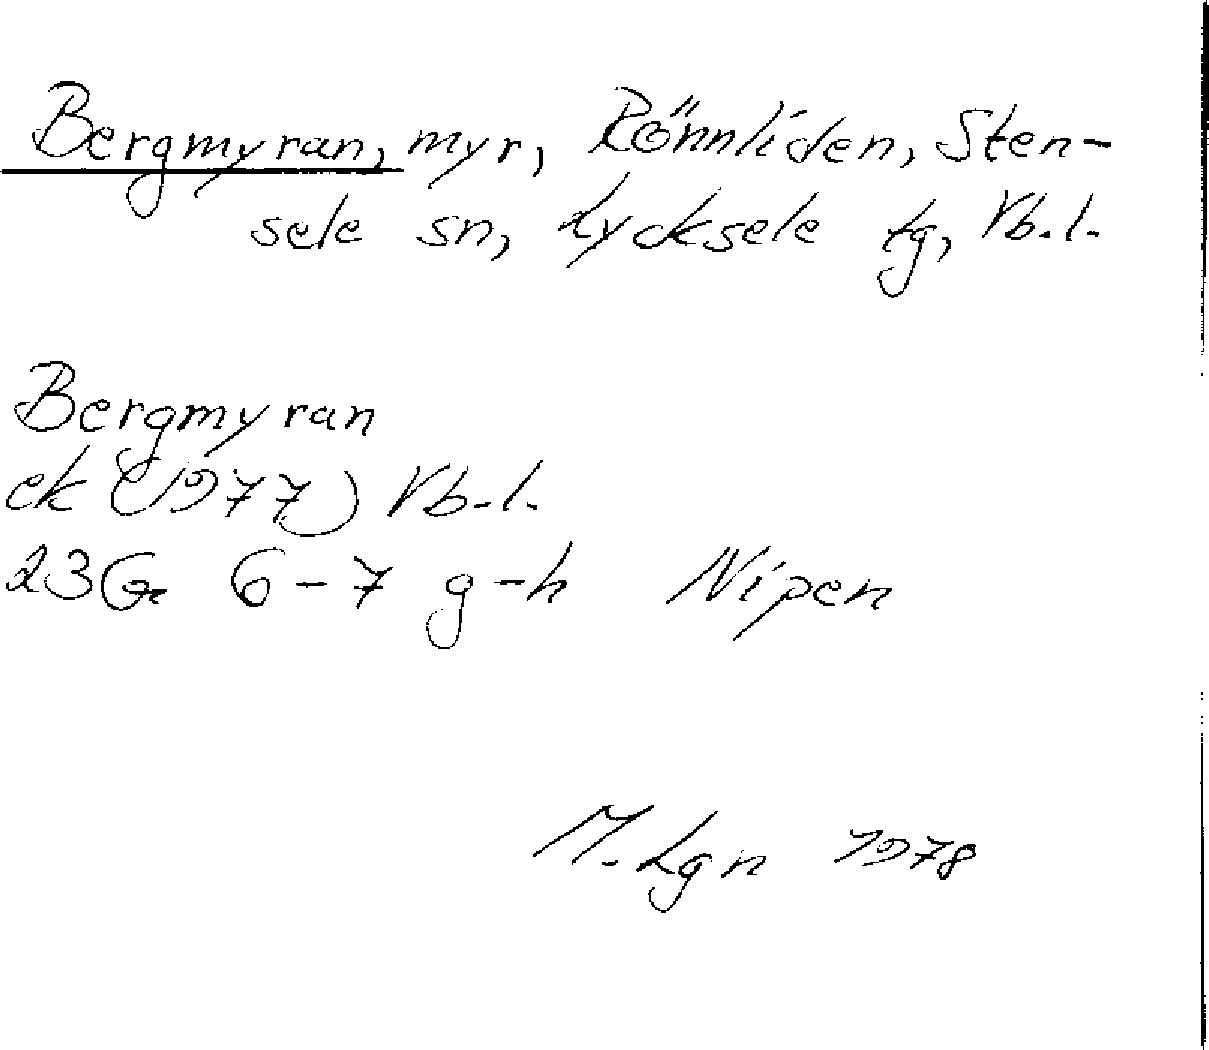 Bergmyran, myr, Rönnliden, Sten-
sele sn, Lycksele tg, Vb.l.
Bergmyran
ek (1977) Vb.l.
23G 6-7 g-h Nipen
M. Lgn 1978